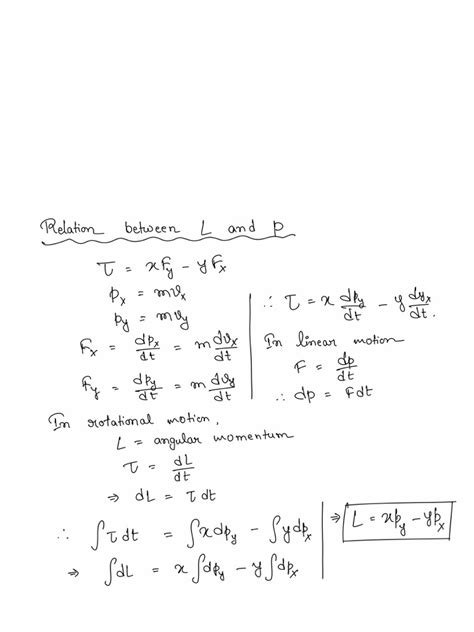 Relation between L and p
τ = xF_y − yF_x
p_x = mv_x
p_y = mv_y
F_x = dp_x/dt = m dv_x/dt
F_y = dp_y/dt = m dv_y/dt
∴ τ = x dp_y/dt − y dp_x/dt.
In linear motion
F = dp/dt
∴ dp = Fdt
In rotational motion,
L = angular momentum
τ = dL/dt
⇒ dL = τ dt
∴ ∫τ dt = ∫x dp_y − ∫y dp_x
⇒ ∫dL = x∫dp_y − y∫dp_x
⇒ L = xp_y − yp_x